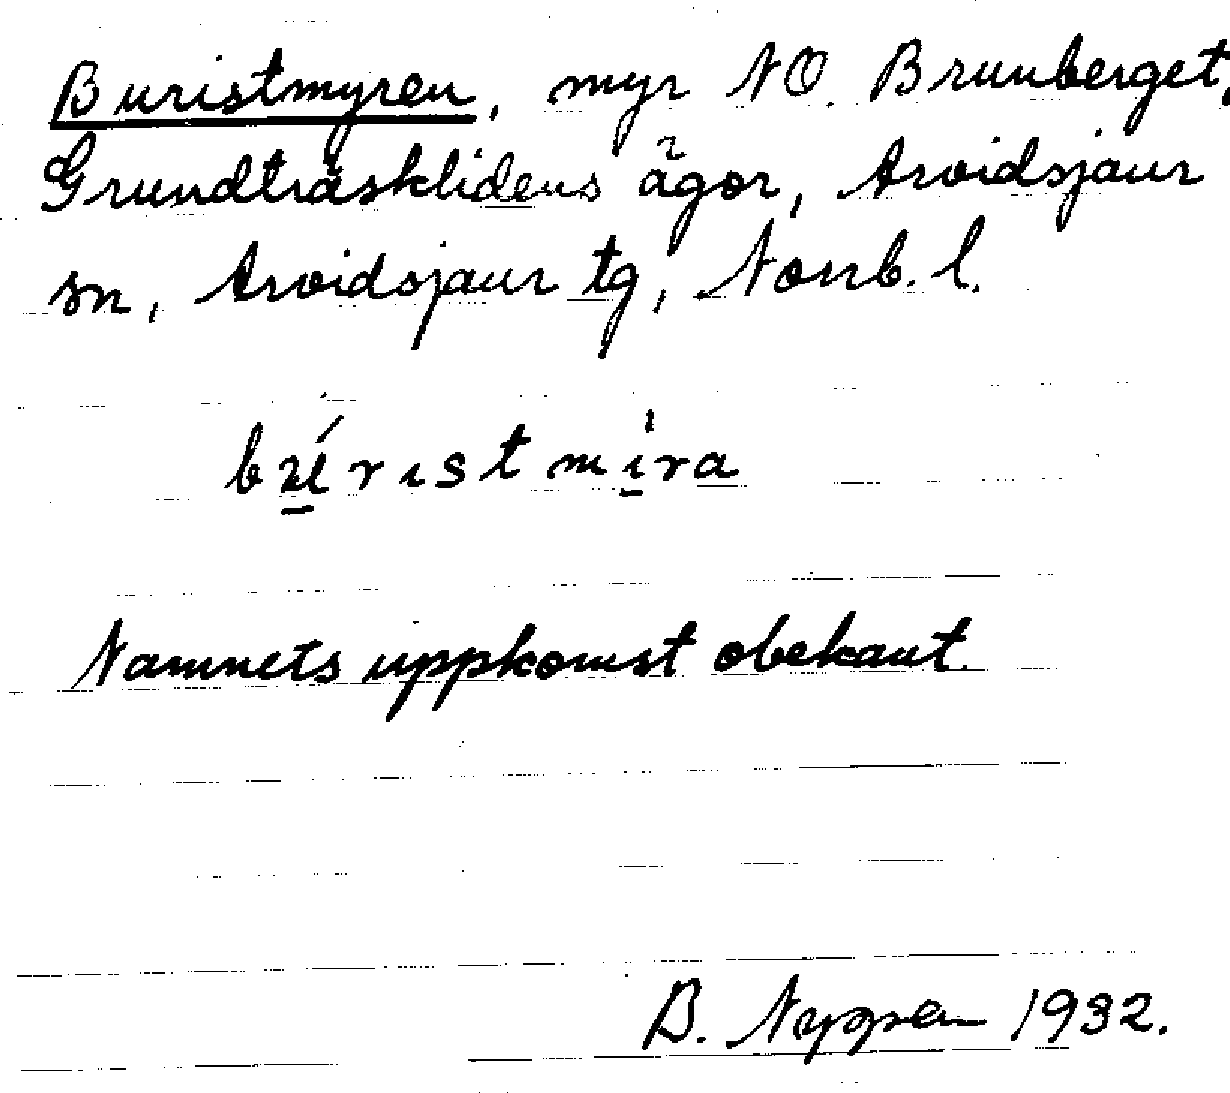 Buristmyren, myr NO. Brunberget,
Grundträsklidens ägor, Arvidsjaur
sn, Arvidsjaur tg, Norrb. l.
búristmira
Namnets uppkomst obekant.
B. Nygren 1932.